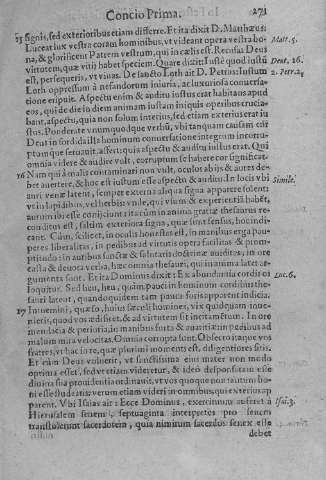 Concio Prima. 271
15 signis, sed exterioribus etiam differre. Et ita dixit D. Matthæus: Matt. 5.
Luceat lux vestra coram hominibus, vt videant opera vestra bona,
& glorificent Patrem vestrum, qui in cælis est. Rursus Deus
virtutem, quæ vitij habet speciem. Quare dixit: Iuste quod iustū Deut. 16.
est, persequeris, vt viuas. De sancto Loth ait D. Petrus: Iustum 2. Petr. 2.
Loth oppressum à nefandorum iniuria, ac luxuriosa conuersatione
eripuit. Aspectu enim & auditu iustus erat habitans apud
eos, qui de die in diem animam iustam iniquis operibus cruciabant,
aspectu, quia non solum interius, sed etiam exterius erat iustus.
Ponderate vnumquodque verbū, vbi tanquam
Deut in sordida illa hominum conuersatione integrum
tomque seruauit, asserit: quia aspectu & auditu iustus erat. Qui
omnia videre & audire vult, corruptum se habere cor significat.
16 Nam qui à malis contaminari non vult, oculos abijs & aures debet
auertere, & hoc est iustum esse aspectu & auditu. In locis vbi Simile.
auri venæ latent, semper externa aliqua signa apparere solent
vt in lapidibus, vel herbis: vnde, qui vium & experientiā habēt,
aurum ibi esse conijciunt: ita cùm in anima gratiæ thesaurus reconditus
est, solum exteriora signa, quæ sunt sensus, hoc indicant.
Cùm, scilicet, in oculis honestas est, in manibus erga pauperes
liberalitas, in pedibus ad virtutis opera facilitas & promptitudo:
in autibus sanctæ & salutaris doctrinæ auiditas; in ore
casta & deuota verba, hæc omnia thesauri, qui in anima latet argumenta
sunt. Et ita Dominus dixit: Ex abundantia cordis os Luc. 6.
loquitur. Sed heu, heu, quàm pauci in hominum cordibus thesauri
latent, quandoquidem tam paucis foris apparent indicia.
17 Inuenimini, quæso, huius sæculi homines, vix quidquam inuenietis,
quod vos ædificet, & ad virtutem sit incitamētum. In ore
mendacia & periuria, in manibus furta & auaritia: in pedibus ad
malum mira velocitas. Omnia corrupta sunt. Obsecro itaque vos
fratres, vt hac in re, quæ plurimi momenti est, diligentiores sitis.
Et cùm Deus voluerit, vt sanctissima eius mater non modo
optima esset, sed vt etiam videretur, & ideò desponsatam esse
diuina sua prouidentia ordinauit, vt vos quoque non tantum boni
esse studeatis: verum etiam videri in omnibus, qui exterius apparent.
Vbi Isaias ait: Ecce Dominus, exercituum auferet à Isai. 3.
Hierusalem senem; septuaginta interpretes pro senem
transtulerunt sacerdotem, quia nimirum sacerdos senex esse
debet